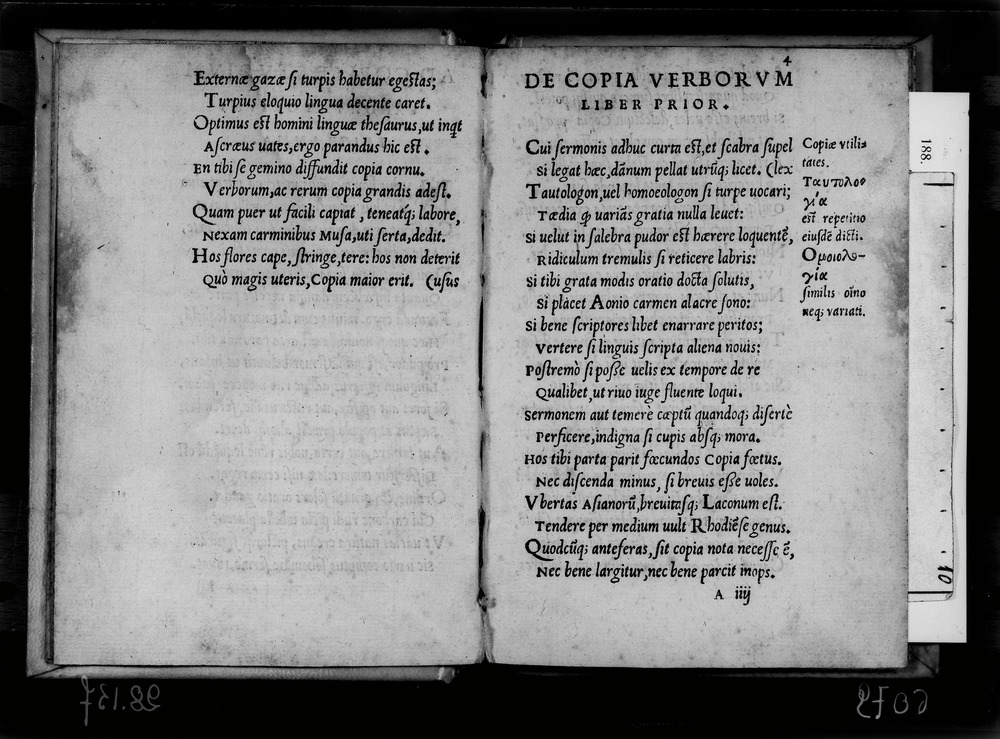 Externæ gazæ ſi turpis habetur egeſtas;
Turpius eloquio lingua decente caret.
Optimus eſt homini linguæ theſaurus, ut inqt
Aſcræus uates, ergo parandus hic eſt.
En tibi ſe gemino diffundit copia cornu.
Verborum, ac rerum copia grandis adeſt.
Quam puer ut facili capiat, teneatq; labore,
Nexam carminibus Muſa, uti ſerta, dedit.
Hos flores cape, ſtringe, tere: hos non deterit
Quò magis uteris, Copia maior erit. (uſus
4
DE COPIA VERBORVM
LIBER PRIOR.
Cui ſermonis adhuc curta eſt, et ſcabra ſupel
Si legat hæc, dãnum pellat utrũq; licet. (lex
Tautologon, uel homoeologon ſi turpe uocari;
Tædia q̃ uariãs gratia nulla leuet:
Si uelut in ſalebra pudor eſt hærere loquentẽ,
Ridiculum tremulis ſi reticere labris:
Si tibi grata modis oratio docta ſolutis,
Si placet Aonio carmen alacre ſono:
Si bene ſcriptores libet enarrare peritos;
Vertere ſi linguis ſcripta aliena nouis:
Poſtremò ſi poſſe uelis ex tempore de re
Qualibet, ut riuo iuge fluente loqui.
Sermonem aut temerè cæptũ quandoq; diſertè
Perficere, indigna ſi cupis abſq; mora.
Hos tibi parta parit fœcundos Copia fœtus.
Nec diſcenda minus, ſi breuis eſſe uoles.
Vbertas Aſianorũ, breuitaſq; Laconum eſt.
Tendere per medium uult Rhodiẽſe genus.
Quodcũq; anteferas, ſit copia nota neceſſe ẽ,
Nec bene largitur, nec bene parcit inops.
A iiij
Copiæ vtili-
tates.
Ταυτολο-
γία
eſt repetitio
eiuſdẽ dicti.
Ομοιολο-
γία
ſimilis oĩno
neq; variati.
188.
10
28.137
6079